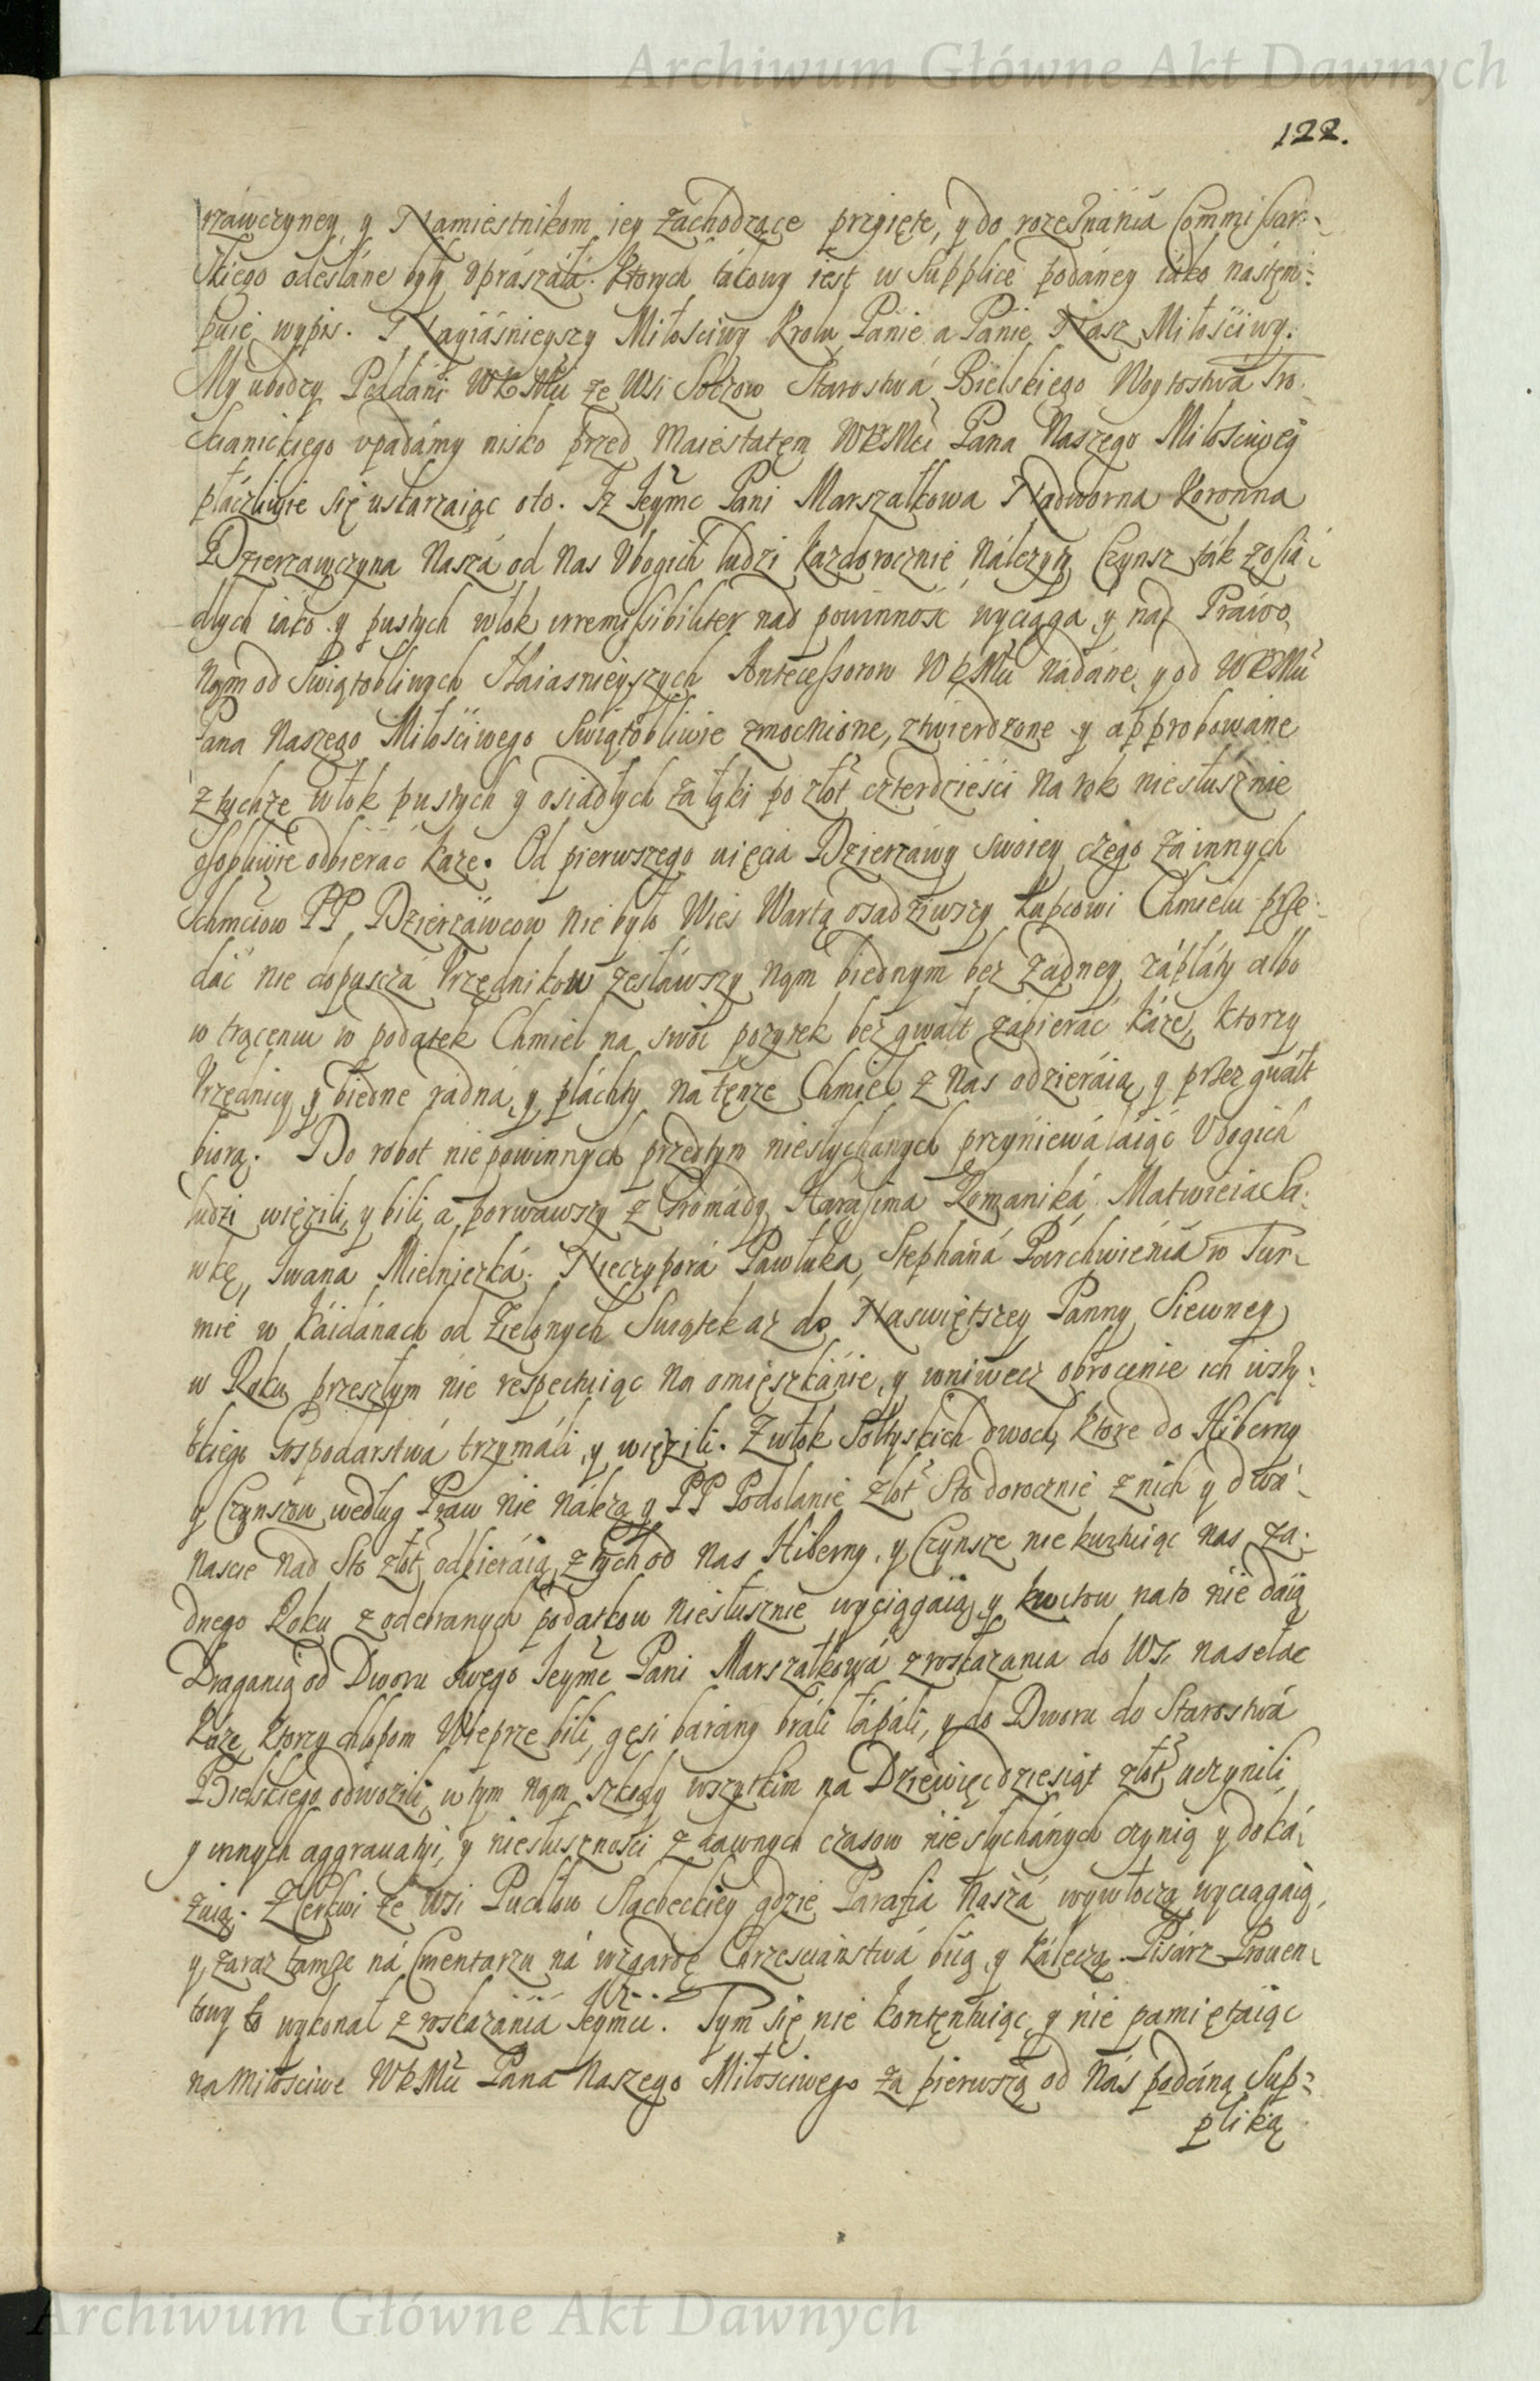 Archiwum Główne Akt Dawnych
122.
rzawczyney, y Namiestnikom iey zachodzące przyięte, y do rozeznánia Commissar-
skiego odesłáne były vpraszáłá. Ktorych tákowy iest w Supplice podáney iáko nastęm-
puie wypis. Nayiáśnieyszy Miłosciwy Krolu Pánie a Pánie Nasz Miłościwy.
My ubodzy Poddáni WKMci ze Wsi Soczow Starostwá Bielskiego Woytostwá Tro-
scianickiego vpadámy nisko przed Maiestatem WKMci Pana Naszego Miłosciweg
płáczliwie się uskarzaiąc oto. Iz Ieymc Pani Marszałkowa Nadworna Koronna
Dzierzawczyna Nászá od Nas Vbogich ludzi kazdorocznie Nálezyty Czynsz ták z osia-
dłych iáko y pustych włok irremissibiliter nad powinnosc wyciąga, y nad Prawo
Nąm od Swiątobliwych Naiasnieyszych Antecessorow WKMci nádáne, y od WKMci
Pana Naszego Miłościwego Swiątobliwie zmocnione, ztwierdzone y approbowáne
z tychze włok pustych y osiadłych zá łąki po złot czterdzieści na rok niesłusznie
osobliwie odbierác kaze. Od pierwszego uięcia Dzierzáwy swoiey czego zá innych
Ichmciow PP. Dzierzáwcow nie było Wies Wartą osadziwszy kupcowi Chmielu prze-
dác nie dopuszczá Vrzędnikow zesławszy Nąm biednym bez żadney zápłáty albo
w trącenia w podatek Chmiel na swoi pozytek bez gwałt zábierác káze, ktorzy
Vrzędnicy y biedne radná, y płáchty na tęnze Chmiel z Nas odzieráią, y przez gwałt
biorą. Do robot niepowinnych przedtym niesłychanych przyniewáláiąc Vbogich
ludzi więzili, y bili, a porwawszy z Gromády Hárásima Romaniká, Matwieia Sa-
wkę, Iwana Mielniczká. Nieczyporá Pawluka, Stepháná Párchwieniá w Tur-
mie w káidánách od Zielonych Swiątek az do Naswiętszey Panny Siewney
w Roku przeszłym nie respectuiąc na omięszkánie, y wniwecz obrocenie ich wszy-
stkiego Gospodárstwá trzymáli, y więzili. Z włok Sołtyskich dwoch, ktore do Hiberny
y Czynszu według Praw nie nálezą y PP Podolanie złot Sto dorocznie z nich y dwá-
nascie nad Sto złot odbieráią, z tych od nas Hiberny, y Czynsze nie kwituiąc nas za-
dnego Roku z odebranych podatkow niesłusznie wyciągaią, y kwitow na to nie dáią
Draganią od Dworu swego Ieymc Pani Marszałkowá z roskazania do Wsi nasełac
káze, ktorzy chłopom Wieprze bili, gęsi barány bráli łápáli, y do Dworu do Starostwá
Bielskiego odwozili, w tym nąm szkody wszytkim na Dziewięcdziesiąt złot uczynili
y innych aggrauatyi, y niesłusznośći z dawnych czasow niesłychánych czynią y doká-
zuią. Z Cerkwi ze Wsi Puchłow Slácheckiey gdzie Parafia Nászá wywłoczą, wyciągaią,
y zaraz tamze ná Cmentarzu ná wzgardę Chrzescianstwá biią, y káleczą. Pisarz Prouen-
towy to wykonał z roskazániá Ieymci. Tym się nie kontęntuiąc, y nie pamiętáiąc
na Miłosciwe WKMci Pana Naszego Miłosciwego zá pierwszą od Nás podáną Sup-
pliką
Archiwum Główne Akt Dawnych